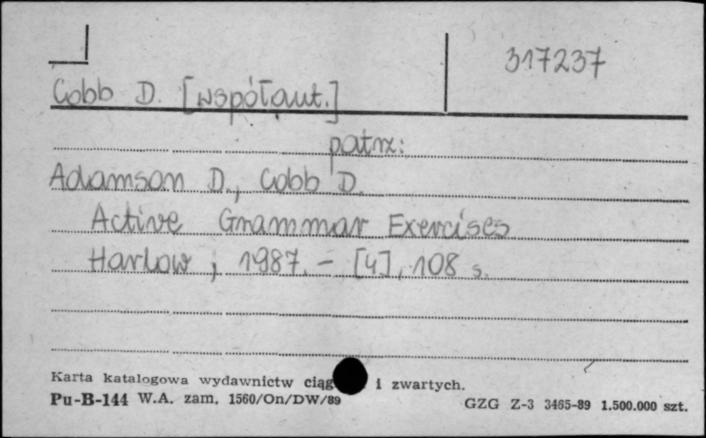 317237
Cobb D. [współaut.]
patrz:
Adamson D., Cobb D.
Active Grammar Exercises
Harlow, 1987. - [4], 108 s.
Karta katalogowa wydawnictw ciąg i zwartych.
Pu-B-144 W.A. zam. 1560/On/DW/89
GZG Z-3 3465-89 1.500.000 szt.